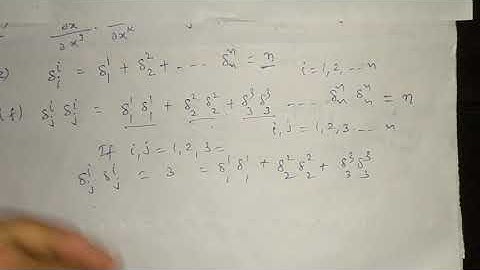 ∂x / ∂x³ · / ∂x^k
e) δ^i_i = δ^1_1 + δ^2_2 + ... δ^n_n = n i = 1,2,... n
(f) δ^i_j δ^i_j = δ^1_1 δ^1_1 + δ^2_2 δ^2_2 + δ^3_3 δ^3_3 ... δ^n_n δ^n_n = n
i,j = 1,2,3 ... n
If i,j = 1,2,3 =
δ^i_j δ^i_j = 3 = δ^1_1 δ^1_1 + δ^2_2 δ^2_2 + δ^3_3 δ^3_3